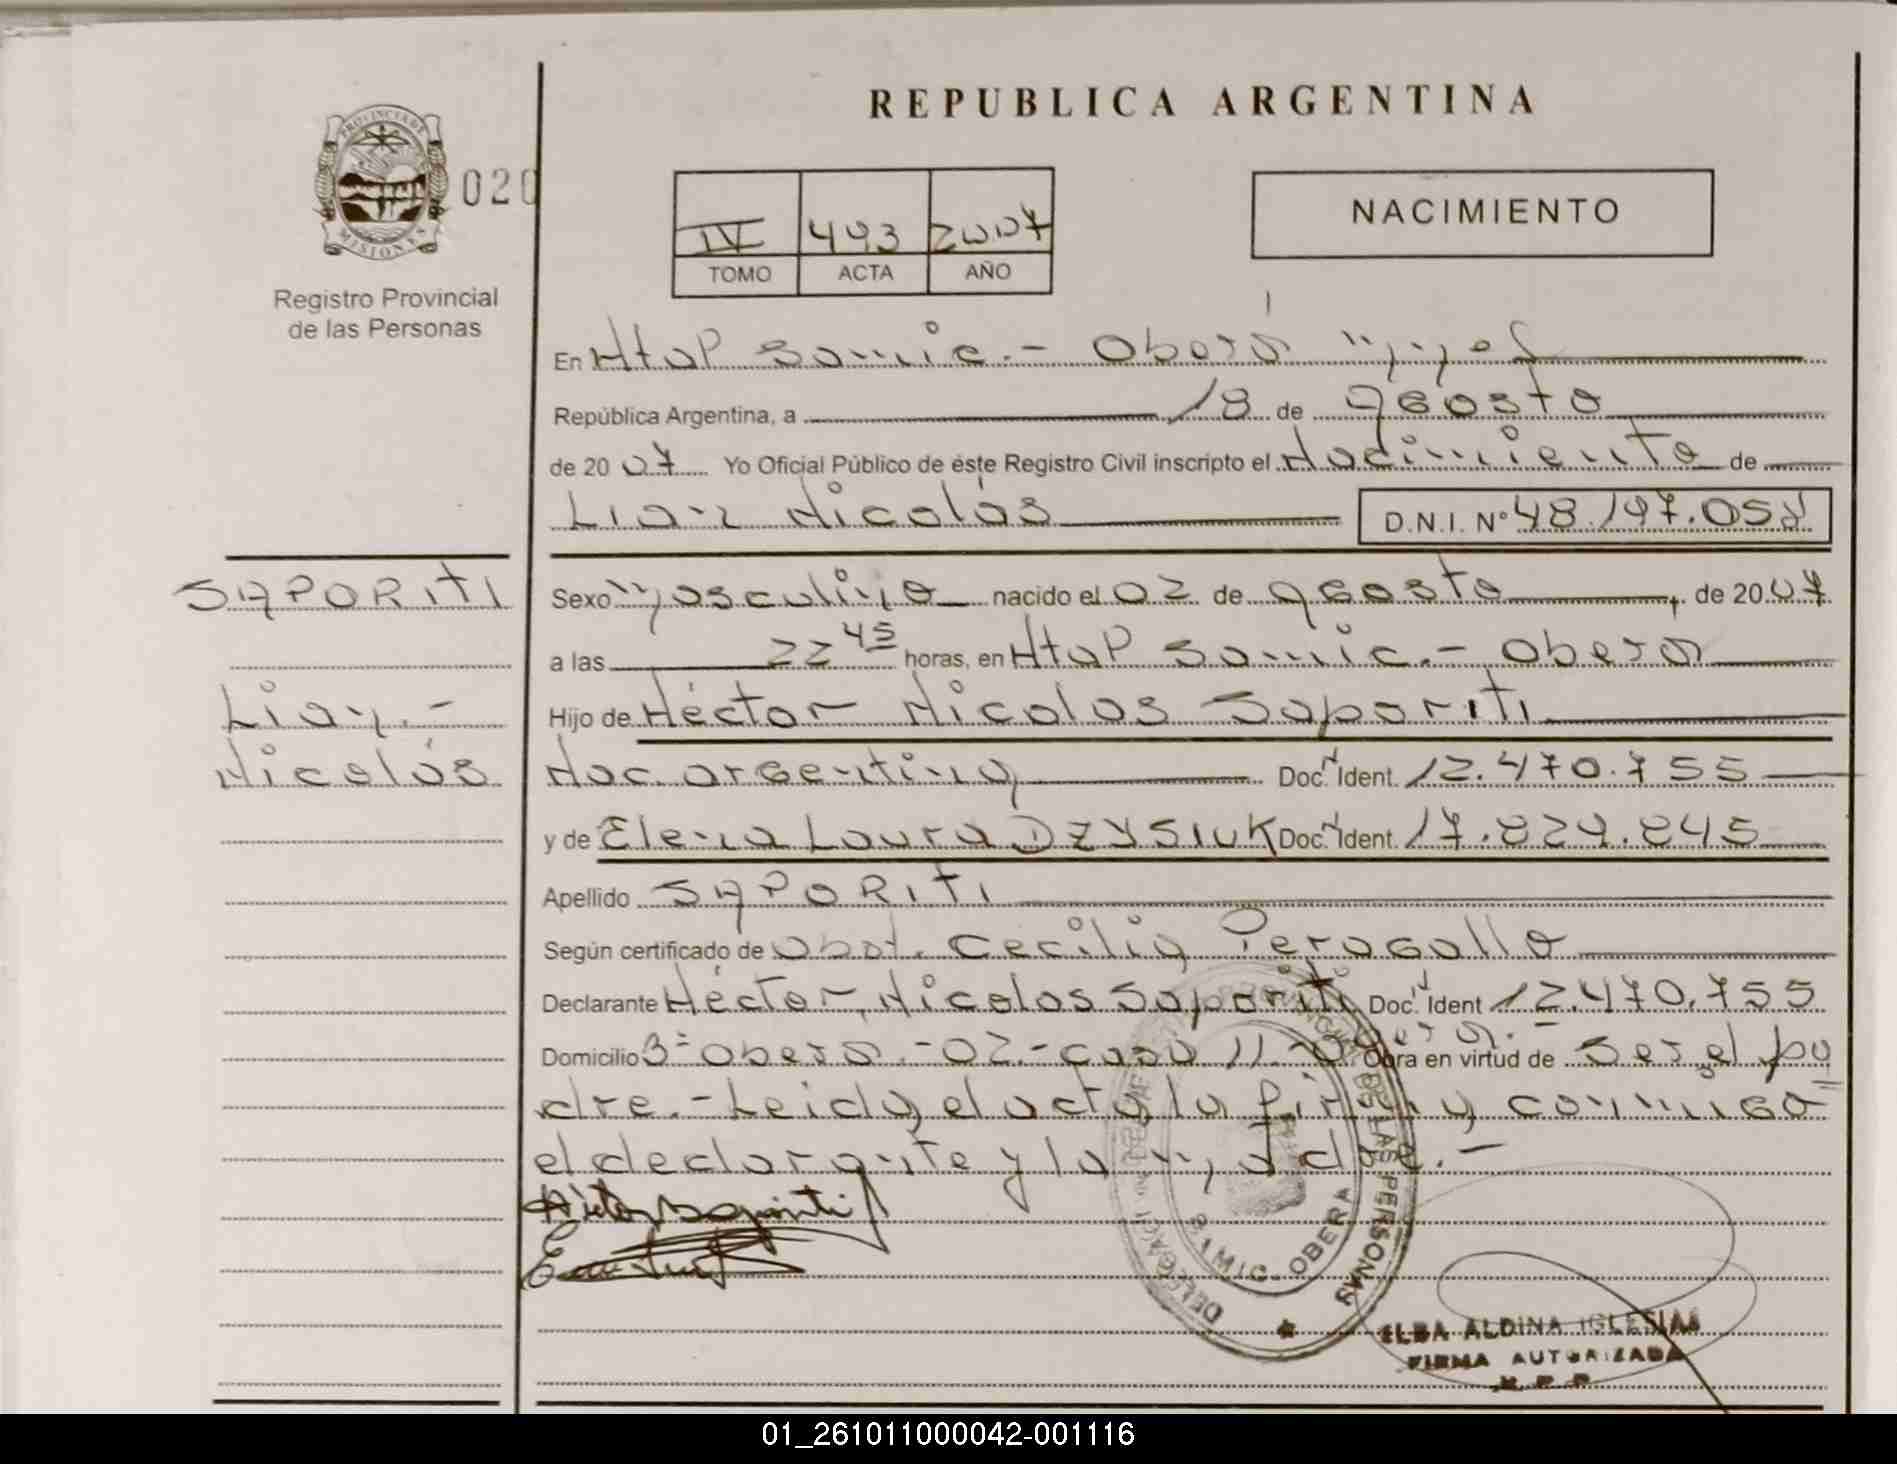 REPUBLICA ARGENTINA
PROVINCIA DE
MISIONES
020
Registro Provincial
de las Personas
IV 443 2007
TOMO ACTA AÑO
NACIMIENTO
En Htal Samic.- Oberá
República Argentina, a 18 de agosto
de 2007 Yo Oficial Público de éste Registro Civil inscripto el Nacimiento de
Lian Nicolás D.N.I. Nº 48.197.058
SAPORITI
Lian.-
Nicolás
Sexo Masculino nacido el 02 de agosto de 2007
a las 22 45 horas, en Htal Samic.- Oberá
Hijo de Héctor Nicolas Saporiti
Nac. argentina Doc. Ident. 12.470.755
y de Elena Laura DZYSIUK Doc. Ident. 17.829.845
Apellido SAPORITI
Según certificado de Obst. Cecilia Peragallo
Declarante Héctor Nicolas Saporiti Doc. Ident 12.470.755
Domicilio 3º Oberá.-02.-casa 11.- Oberá.- Obra en virtud de Ser el pa
dre.- Leida el acta la firman conmigo
el declarante y la madre.-
DE LAS PERSONAS
SAMIC - OBERA
ELBA ALDINA IGLESIAS
FIRMA AUTORIZADA
R.P.P.
01_261011000042-001116